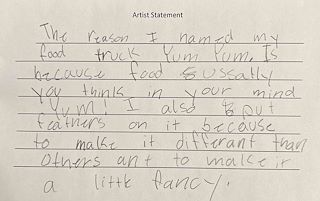 Artist Statement
The reason I named my
food truck Yum Yum. Is
because food Sussally
you think in your mind
Yum! I also put
feathers on it because
to make it different than
others ant to make it
a little fancy.